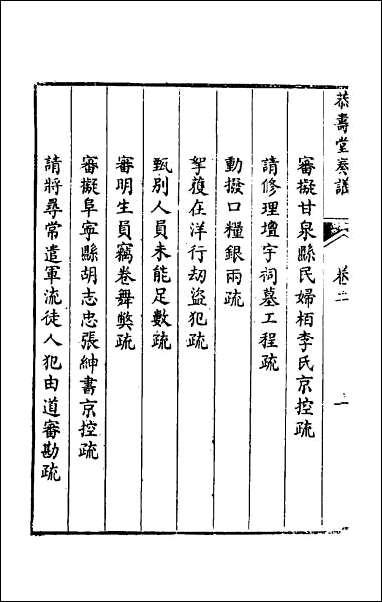 恭壽堂奏議 卷二
審擬甘泉縣民婦栢李氏京控疏
請修理壇宇祠墓工程疏
動撥口糧銀兩疏
拏獲在洋行劫盜犯疏
甄別人員未能足數疏
審明生員竊卷舞弊疏
審擬阜寧縣胡志忠張紳書京控疏
請將尋常遣軍流徒人犯由道審勘疏